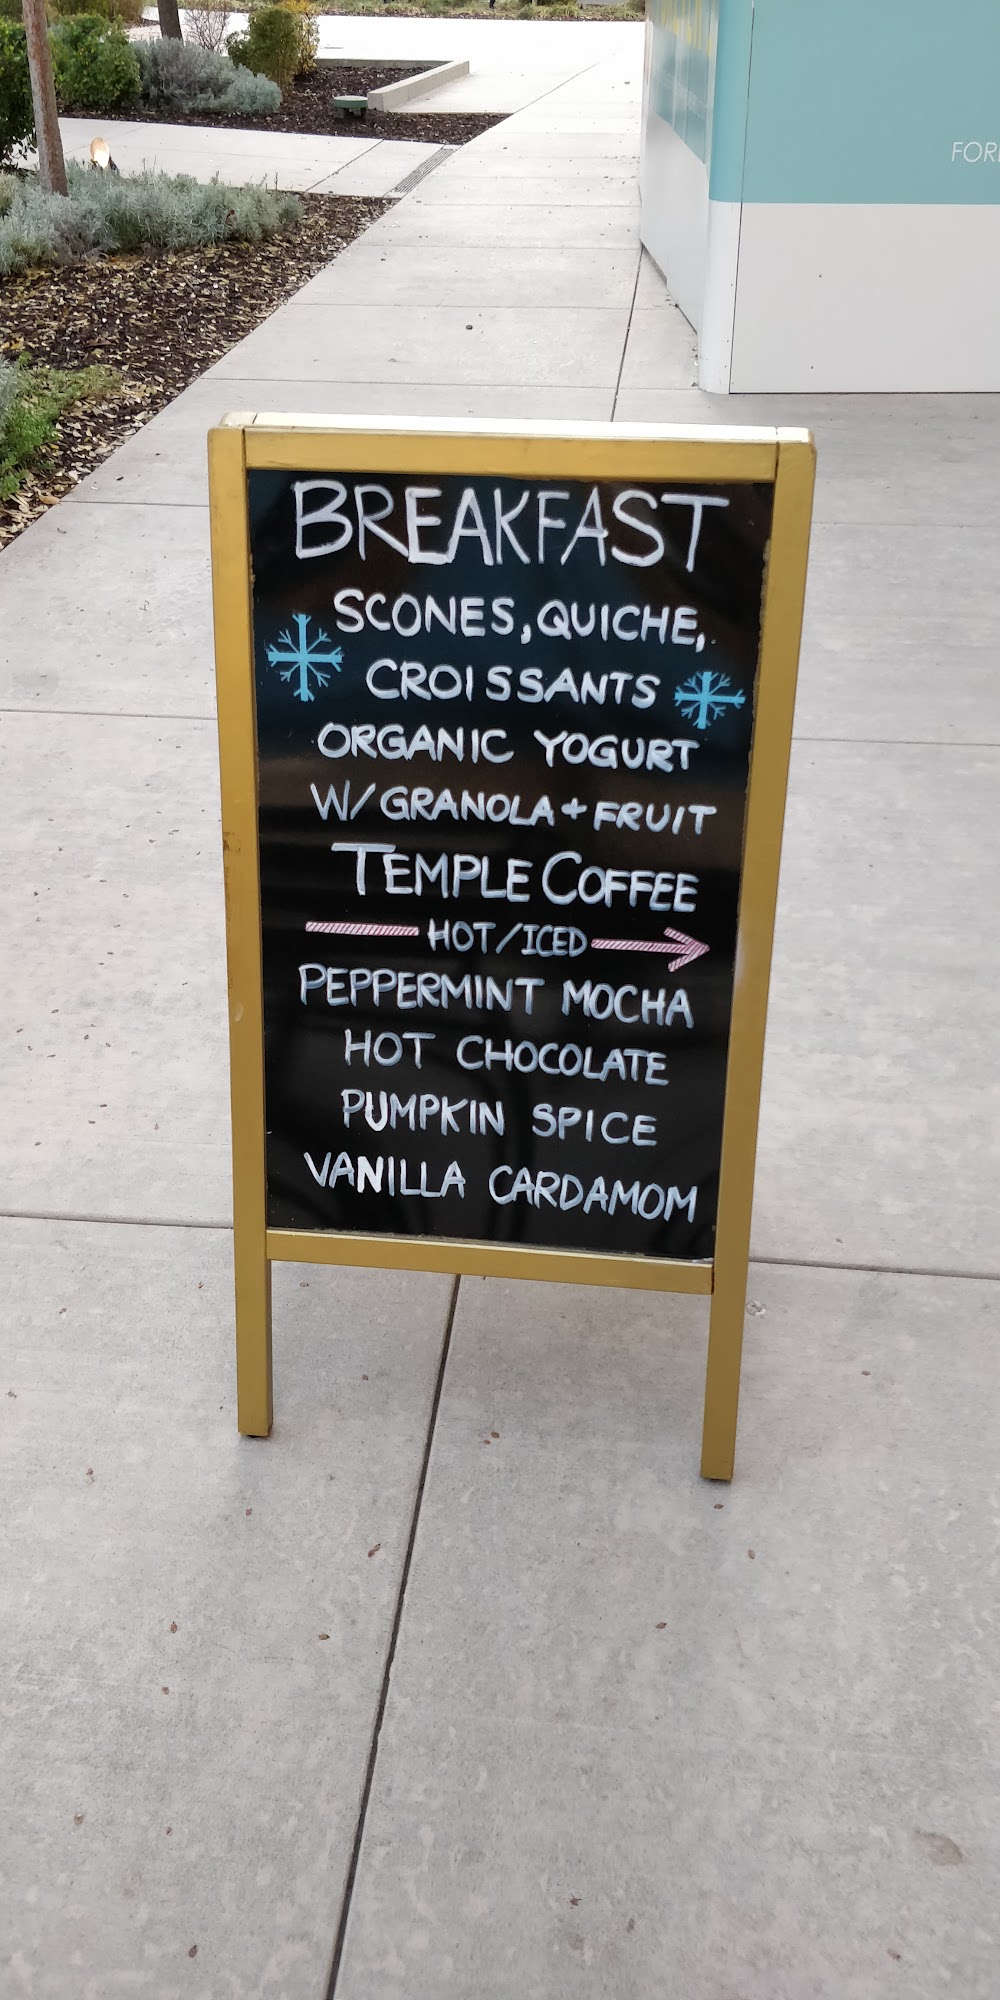 FOR
BREAKFAST
SCONES, QUICHE,
CROISSANTS
ORGANIC YOGURT
W/ GRANOLA + FRUIT
TEMPLE COFFEE
HOT/ICED
PEPPERMINT MOCHA
HOT CHOCOLATE
PUMPKIN SPICE
VANILLA CARDAMOM